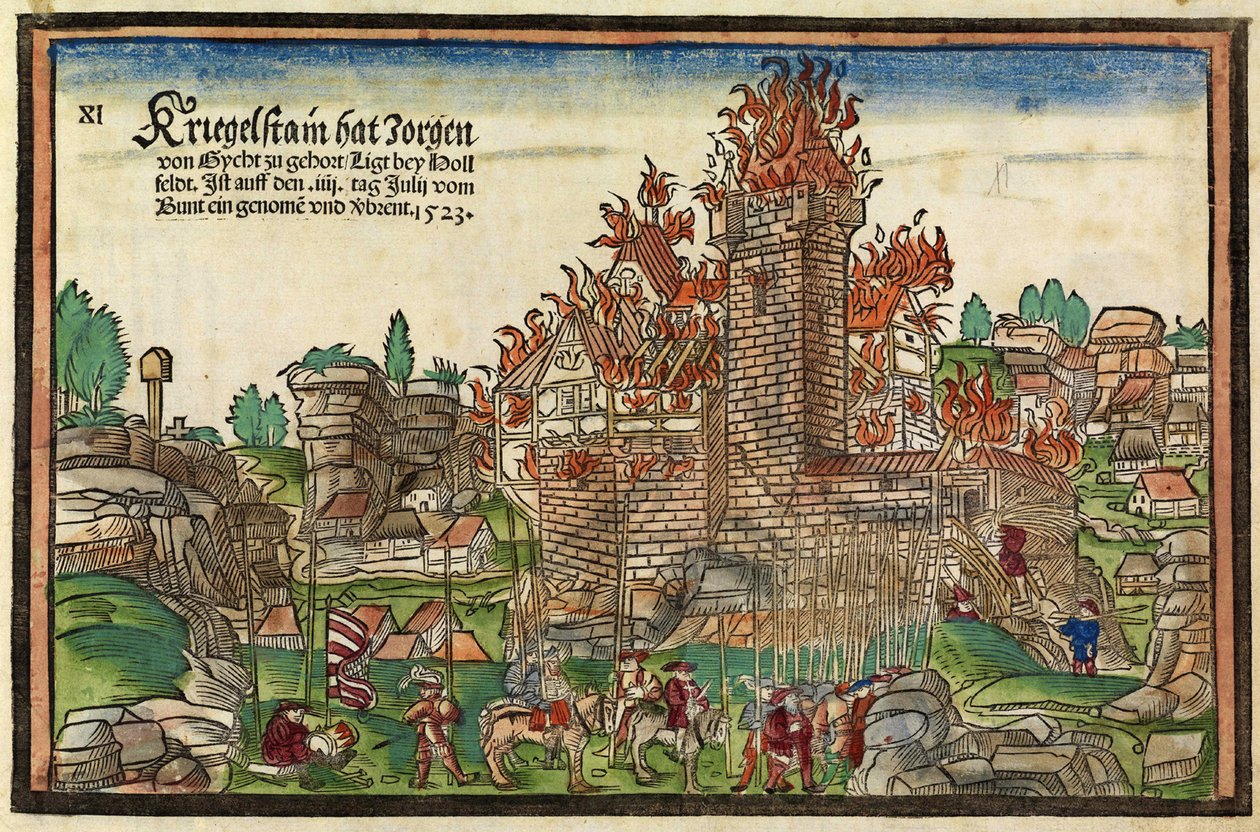 XI
Kriegelstain hat Jorgen
von Gycht zu gehort/Ligt bey Holl
feldt. Ist auff den .iiij. tag Julij vom
Bunt ein genomē vnd v̈brent. 1523.
XI